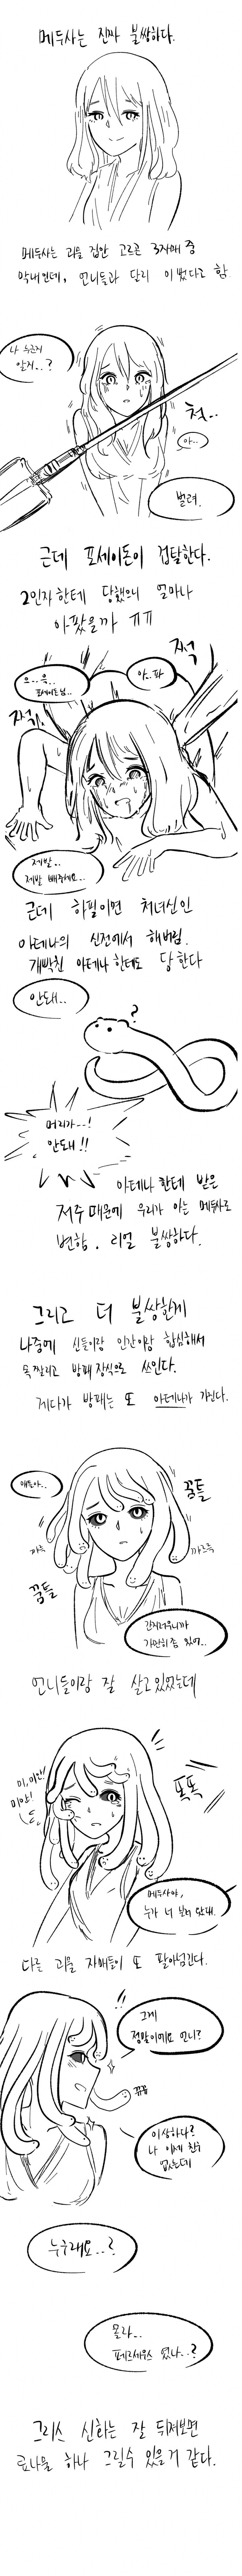 메두사는 진짜 불쌍하다.
메두사는 괴물 집안 고르곤 3자매 중
막내인데, 언니들과 달리 이뻤다고 함.
나 누군지
알지..?
척..
아..
벌려.
근데 포세이돈이 겁탈한다.
2인자한테 당했으니 얼마나
아팠을까 ㅠㅠ
으..윽..
포세이돈님..
아..파
쩍
쩍
제발..
제발 빼주세요..
근데 하필이면 처녀신인
아테나의 신전에서 해버림.
개빡친 아테나한테도 당한다
안돼..
?
머리가--!
안돼!!
아테나한테 받은
저주 때문에 우리가 아는 메두사로
변함. 리얼 불쌍하다.
그리고 더 불쌍한게
나중에 신들이랑 인간이랑 합심해서
목 짤리고 방패 장식으로 쓰인다.
게다가 방패는 또 아테나가 가진다.
얘들아..
꿈틀
꿈틀
간지러우니까
가만히 좀 있어..
언니들이랑 잘 살고 있었는데
미,미안!!
미안!
똑똑
메두사야,
누가 너 보러 왔대.
다른 괴물 자매들이 또 팔아넘긴다.
!!
그게
정말이에요 언니?
이상하다?
나 이제 친구
없는데
누구래요..?
몰라..
페르세우스 였나..?
그리스 신화는 잘 뒤져보면
료나물 하나 그릴수 있을거 같다.